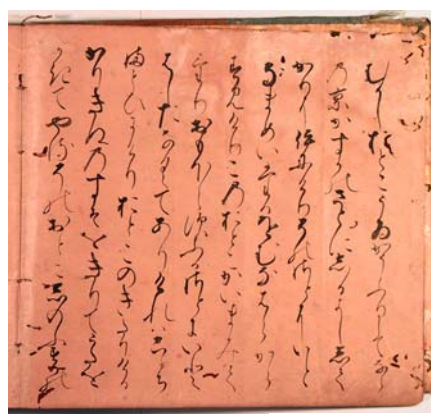 むかしおとこうゐかうふりしてなら
の京かすかのさとにしるよしゝて
かりに徃にけりそのさとにいと
なまめいたるをむなはらから
すみけりこのおとこかいまみて
けりおもほえすふるさとにいと
はしたなくてありけれは心ち
まとひにけりおとこのきたりける
かりきぬのすそをきりてうたを
かきてやるそのおとこしのふすりの